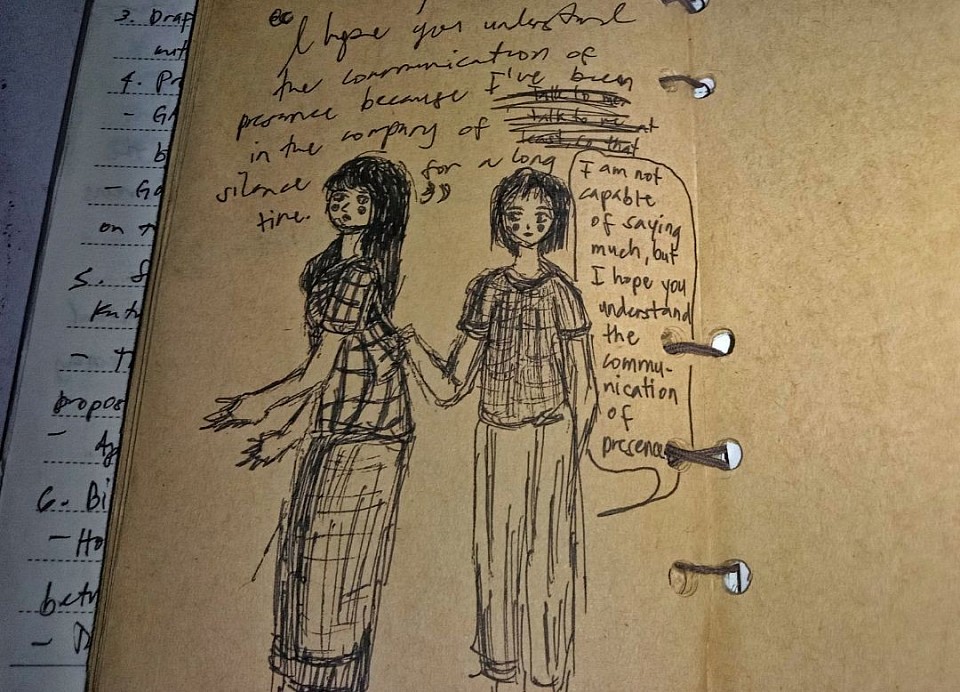 3. Draf
4. Pr
- Gr
- Ga
on
5.
Kutu
- T
propos
-
6. Bi
- Ho
betw
- D
I hope you understand
the communication of
presence because I've been
in the company of
silence for a long
time.
Talk to me
talk to me at
least so that
I am not
capable
of saying
much, but
I hope you
understand
the
commu-
nication
of
presence